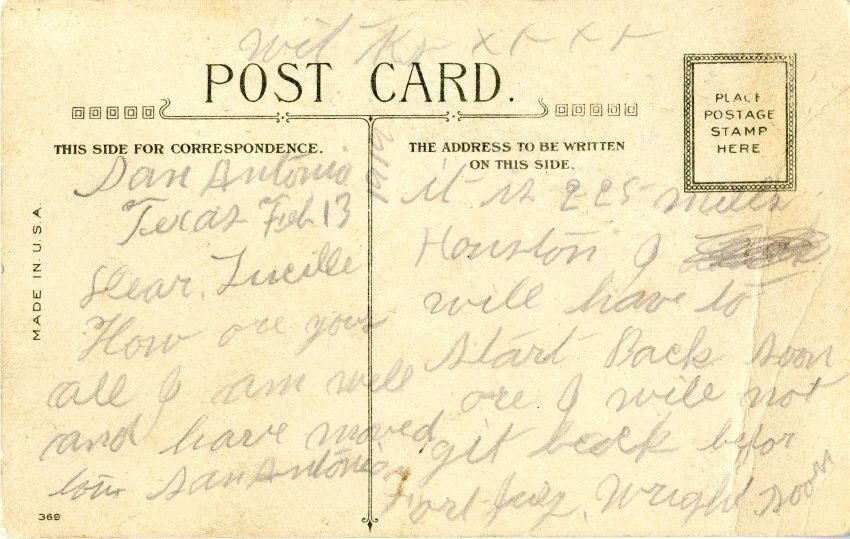 POST CARD.
PLACE
POSTAGE
STAMP
HERE
THIS SIDE FOR CORRESPONDENCE.
THE ADDRESS TO BE WRITTEN
ON THIS SIDE.
MADE IN U.S.A.
San Antonio
Texas Feb 13
Dear. Lucille
How are you
all I am well
and have moved
San Antonio
it is 225 miles
Houston I
will have to
start Back soon
ore I will not
git back befor
Wright soon
369
wit x x x x